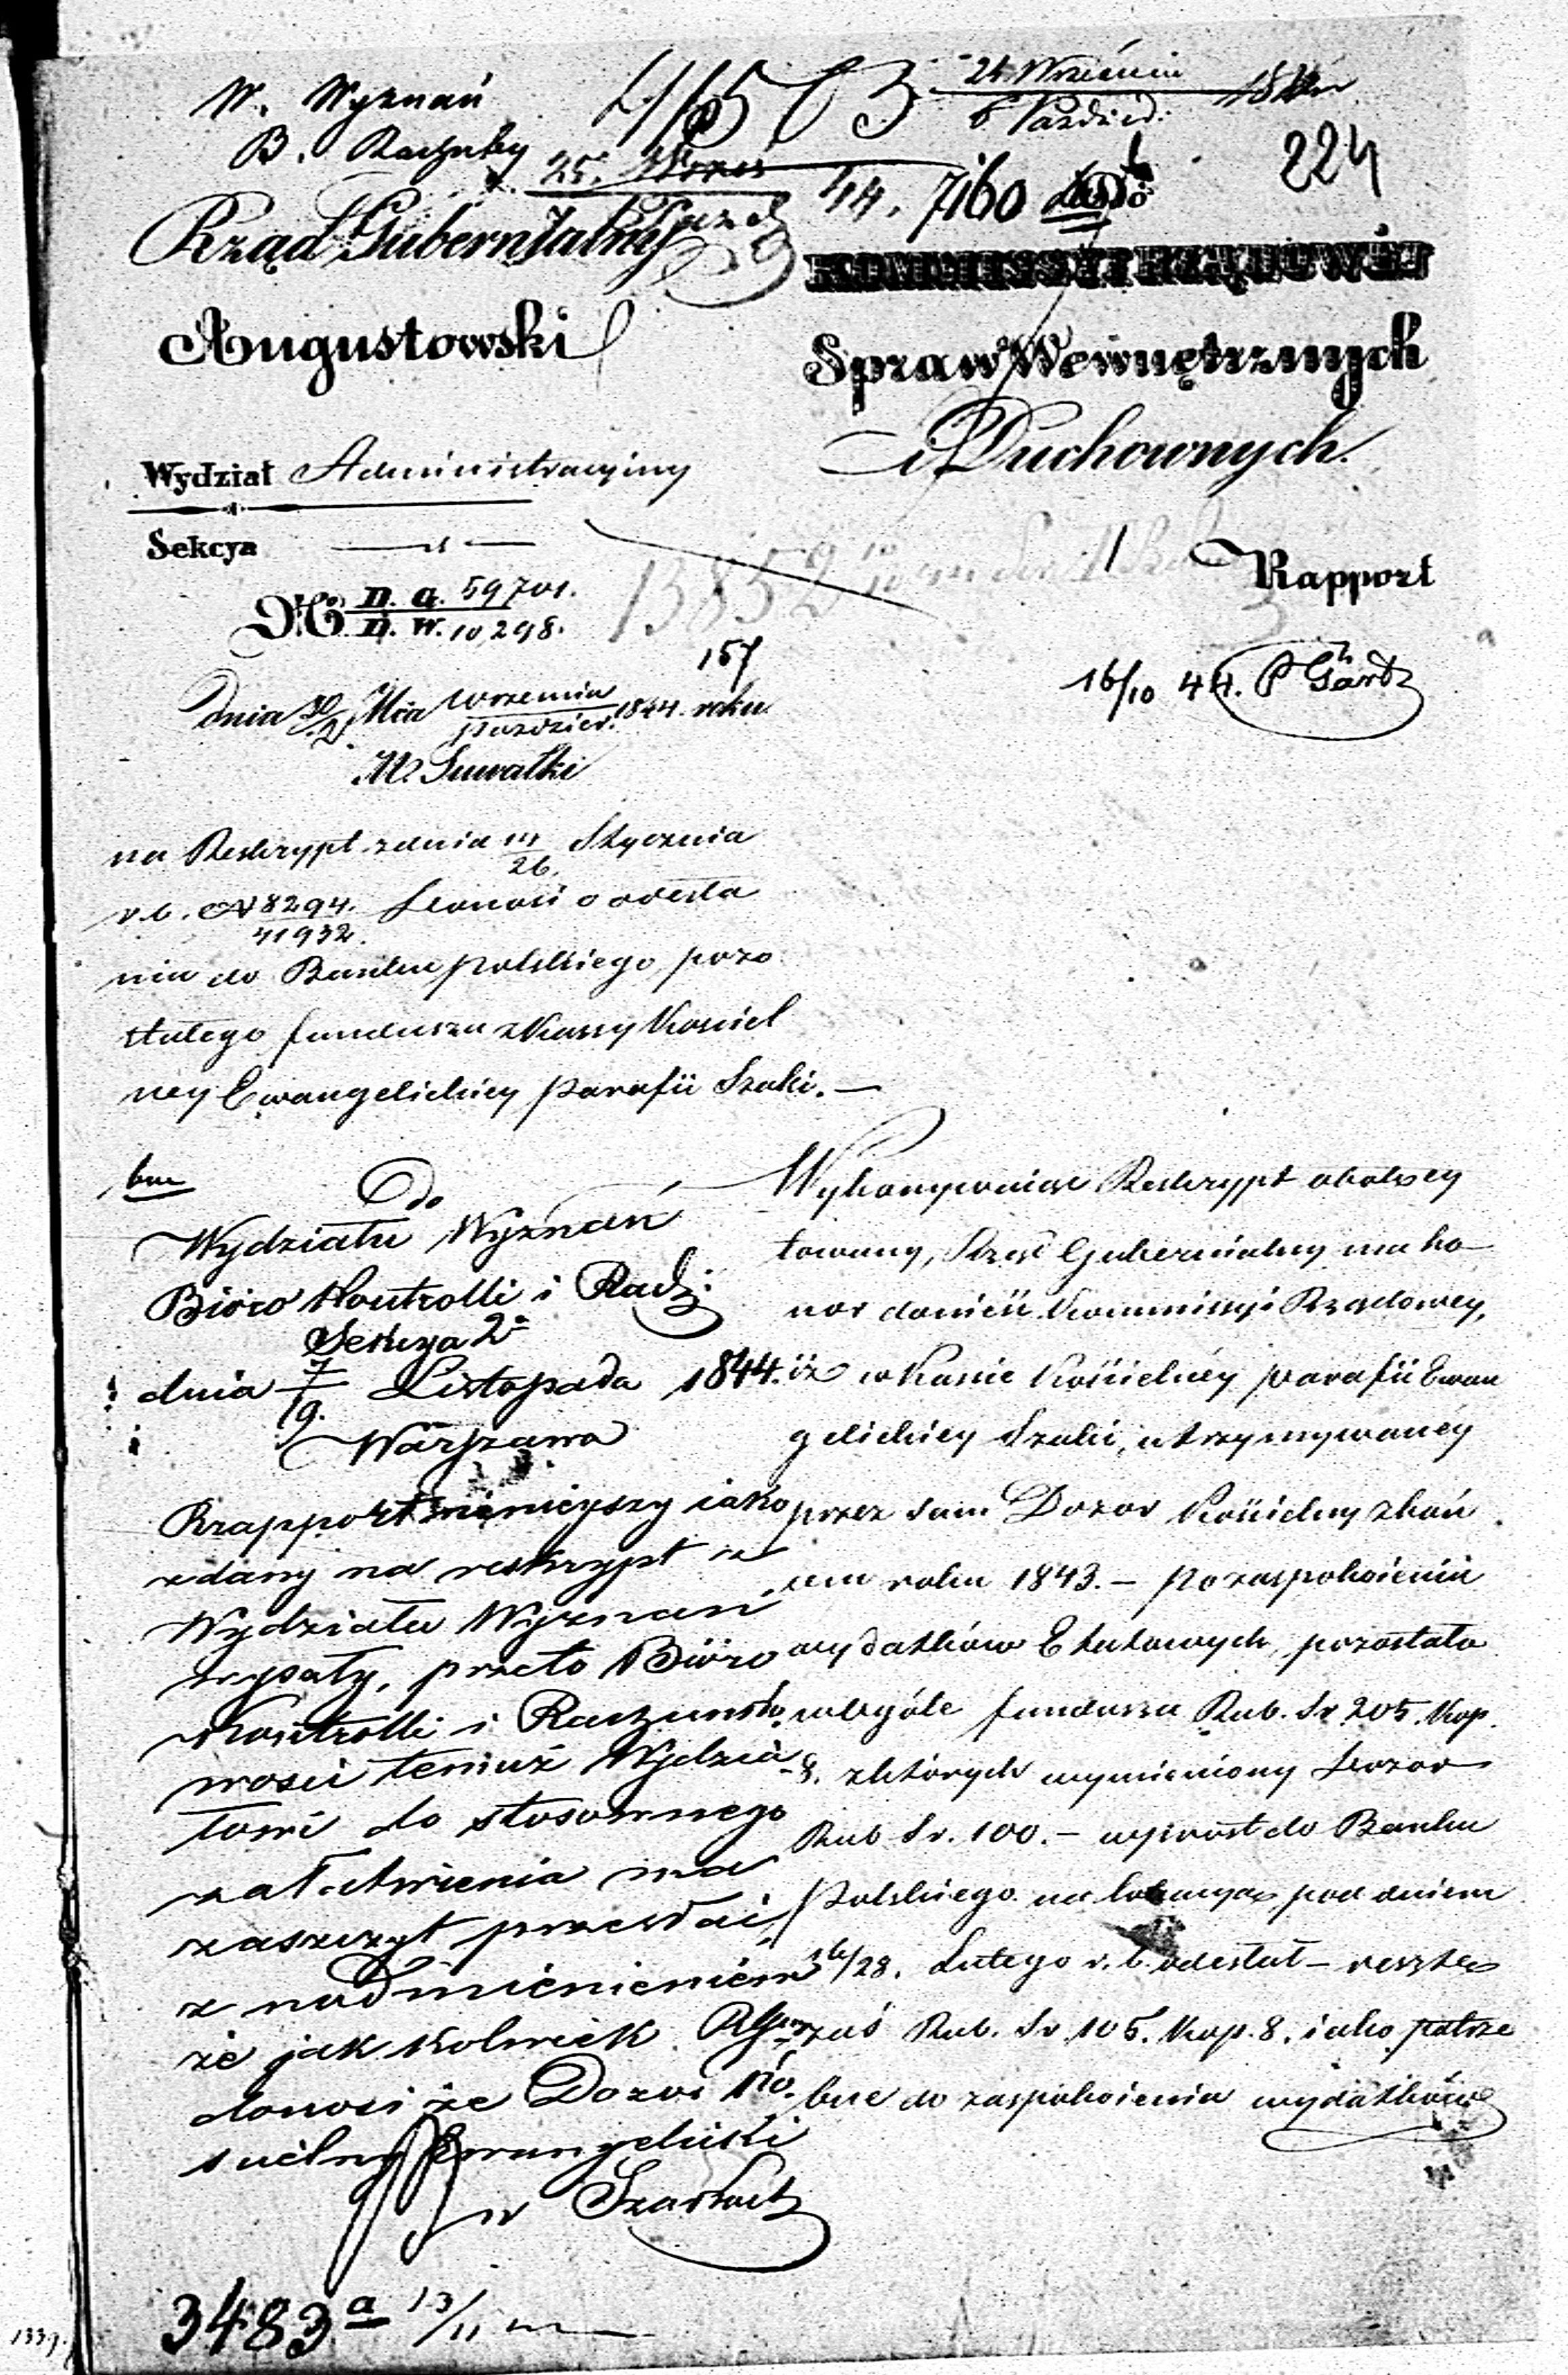 W. Wyznań
B. Rachuby
24 Września
6 Paździer.
224
44. 7160
Rząd Gubernialny
Augustowski
KOMMISSYI RZĄDOWÉY
Spraw Wewnętrznych
i Duchownych.
Wydział Administracyiny
Sekcya
13852
Rapport
N° D. G. 59701.
D. W. 10,298.
157
16/10 44. P Gärtz
dnia 20/2 Mca Września/Paździer. 1844. roku
M. Suwałki
na Reskrypt z dnia 14/26. Stycznia
r. b. N 8294./41932. Donosi o odesła
niu do Banku Polskiego pozo
stałego funduszu z Kassy Kościel
ney Ewangelickiey Parafii Szaki. —
Wykonywaiąc Reskrypt obokcy
towany, Rząd Gubernialny ma ho
nor donieść Kommissyi Rządowey,
iż w Kasie Kościelnéy parafii Ewan
gelickiey Szaki, utrzymywanéy
przez sam Dozor Kościelny z koń
cem roku 1843. — po zaspokoieniu
wydatków Etatowych, pozostało
w ogóle funduszu Rub. Sr. 205. Kop.
8. z których wymieniony Dozor
Rub Sr. 100. — wprost do Banku
Polskiego na lokacyą pod dniem
16/28. Lutego r. b. odesłał — resztę
zaś Rub. Sr. 105. Kop. 8. iako potrze
bne do zaspokoienia wydatków
Do
Wydziału Wyznań
Bióro Kontrolli i Rach:
Sekcya 2a
dnia 7/19. Listopada 1844.
Warszawa
Rapport ninieyszy iako
zdany na reskrypt z
Wydziału Wyznań
wyszły, przeto Bióro
Kontrolli i Rachunko
wości temuż Wydzia
łowi do stosownego
załatwienia ma
zaszczyt przesłać
z nadmienieniem
że jak kolwiek
donosi że Dozór Ko
ścielny Ewangelicki
w Szakach
3483 a 13/11